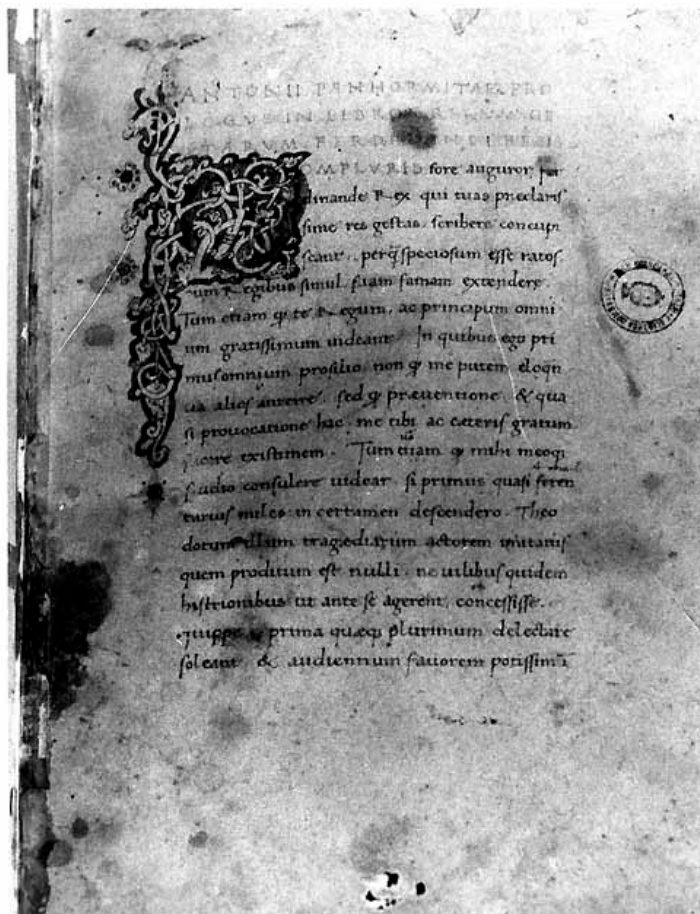 ANTONII PANHORMITAE PRO
LOGVS IN LIBROS RERVM GE
STARVM FERDINANDI REGI
OMPLVRIS fore auguror fer
dinande Rex qui tuas preclaris
sime res gestas scribere concupi
scant. perq̃ speciosum esse ratos.
cum Regibus simul suam famam extendere.
Tum etiam ꝙ te Regum, ac principum omni
um gratissimum uideant. In quibus ego pri
mus omnium prosilio non ꝙ me putem eloqn
tia alios anteire. sed ꝙ praeuentione. & qua
si prouocatione hac. me tibi ac caeteris gratum
facere existimem. Tum etiam ꝙ mihi meoqꝫ
studio consulere uidear. si primus quasi feren
tarius miles in certamen descendero. Theo
dorum illum tragaediarum actorem imitatus
quem proditum est nulli. ne uilibus quidem
histrionibus ut ante se agerent, concessisse.
quippe ꝙ prima quaeqꝫ plurimum delectare
soleant & audientium fauorem potissimū